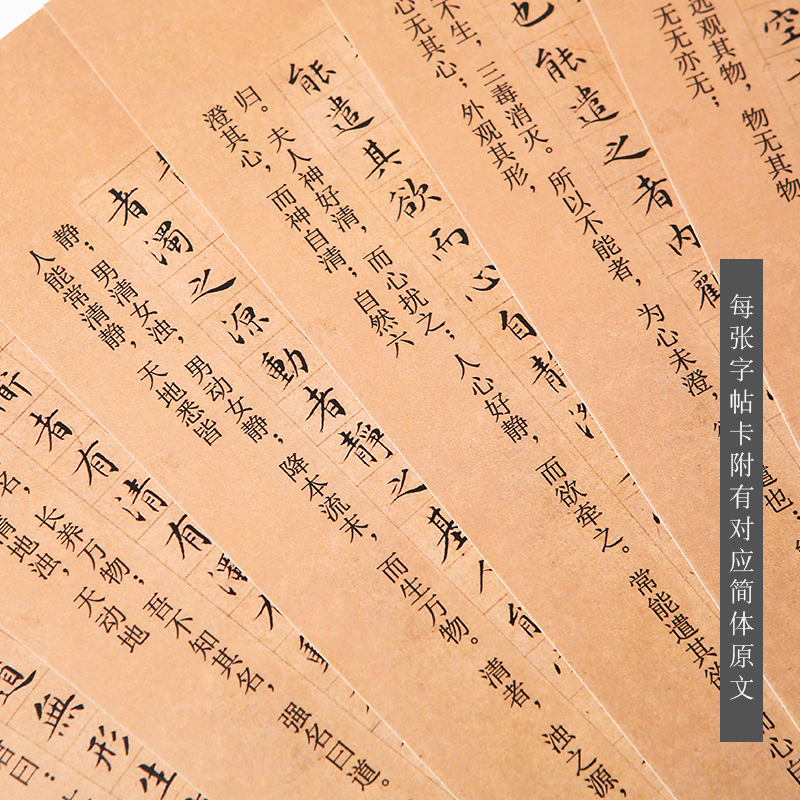 道無形生
君曰：
者有清有濁
名，长养万物；吾不知其名，强名曰道。
清地浊，天动地
者濁之源動者靜之基人能
静；男清女浊，男动女静；降本流末，而生万物。清者，浊之源，
人能常清静，天地悉皆
能遣其欲而心自靜
归。夫人神好清，而心扰之；人心好静，而欲牵之。常能遣其欲
澄其心，而神自清；自然六
也能遣之者内觀
不生，三毒消灭。所以不能者，为心未澄，
心无其心；外观其形，
空
远观其物，物无其物
无无亦无；
每张字帖卡附有对应简体原文